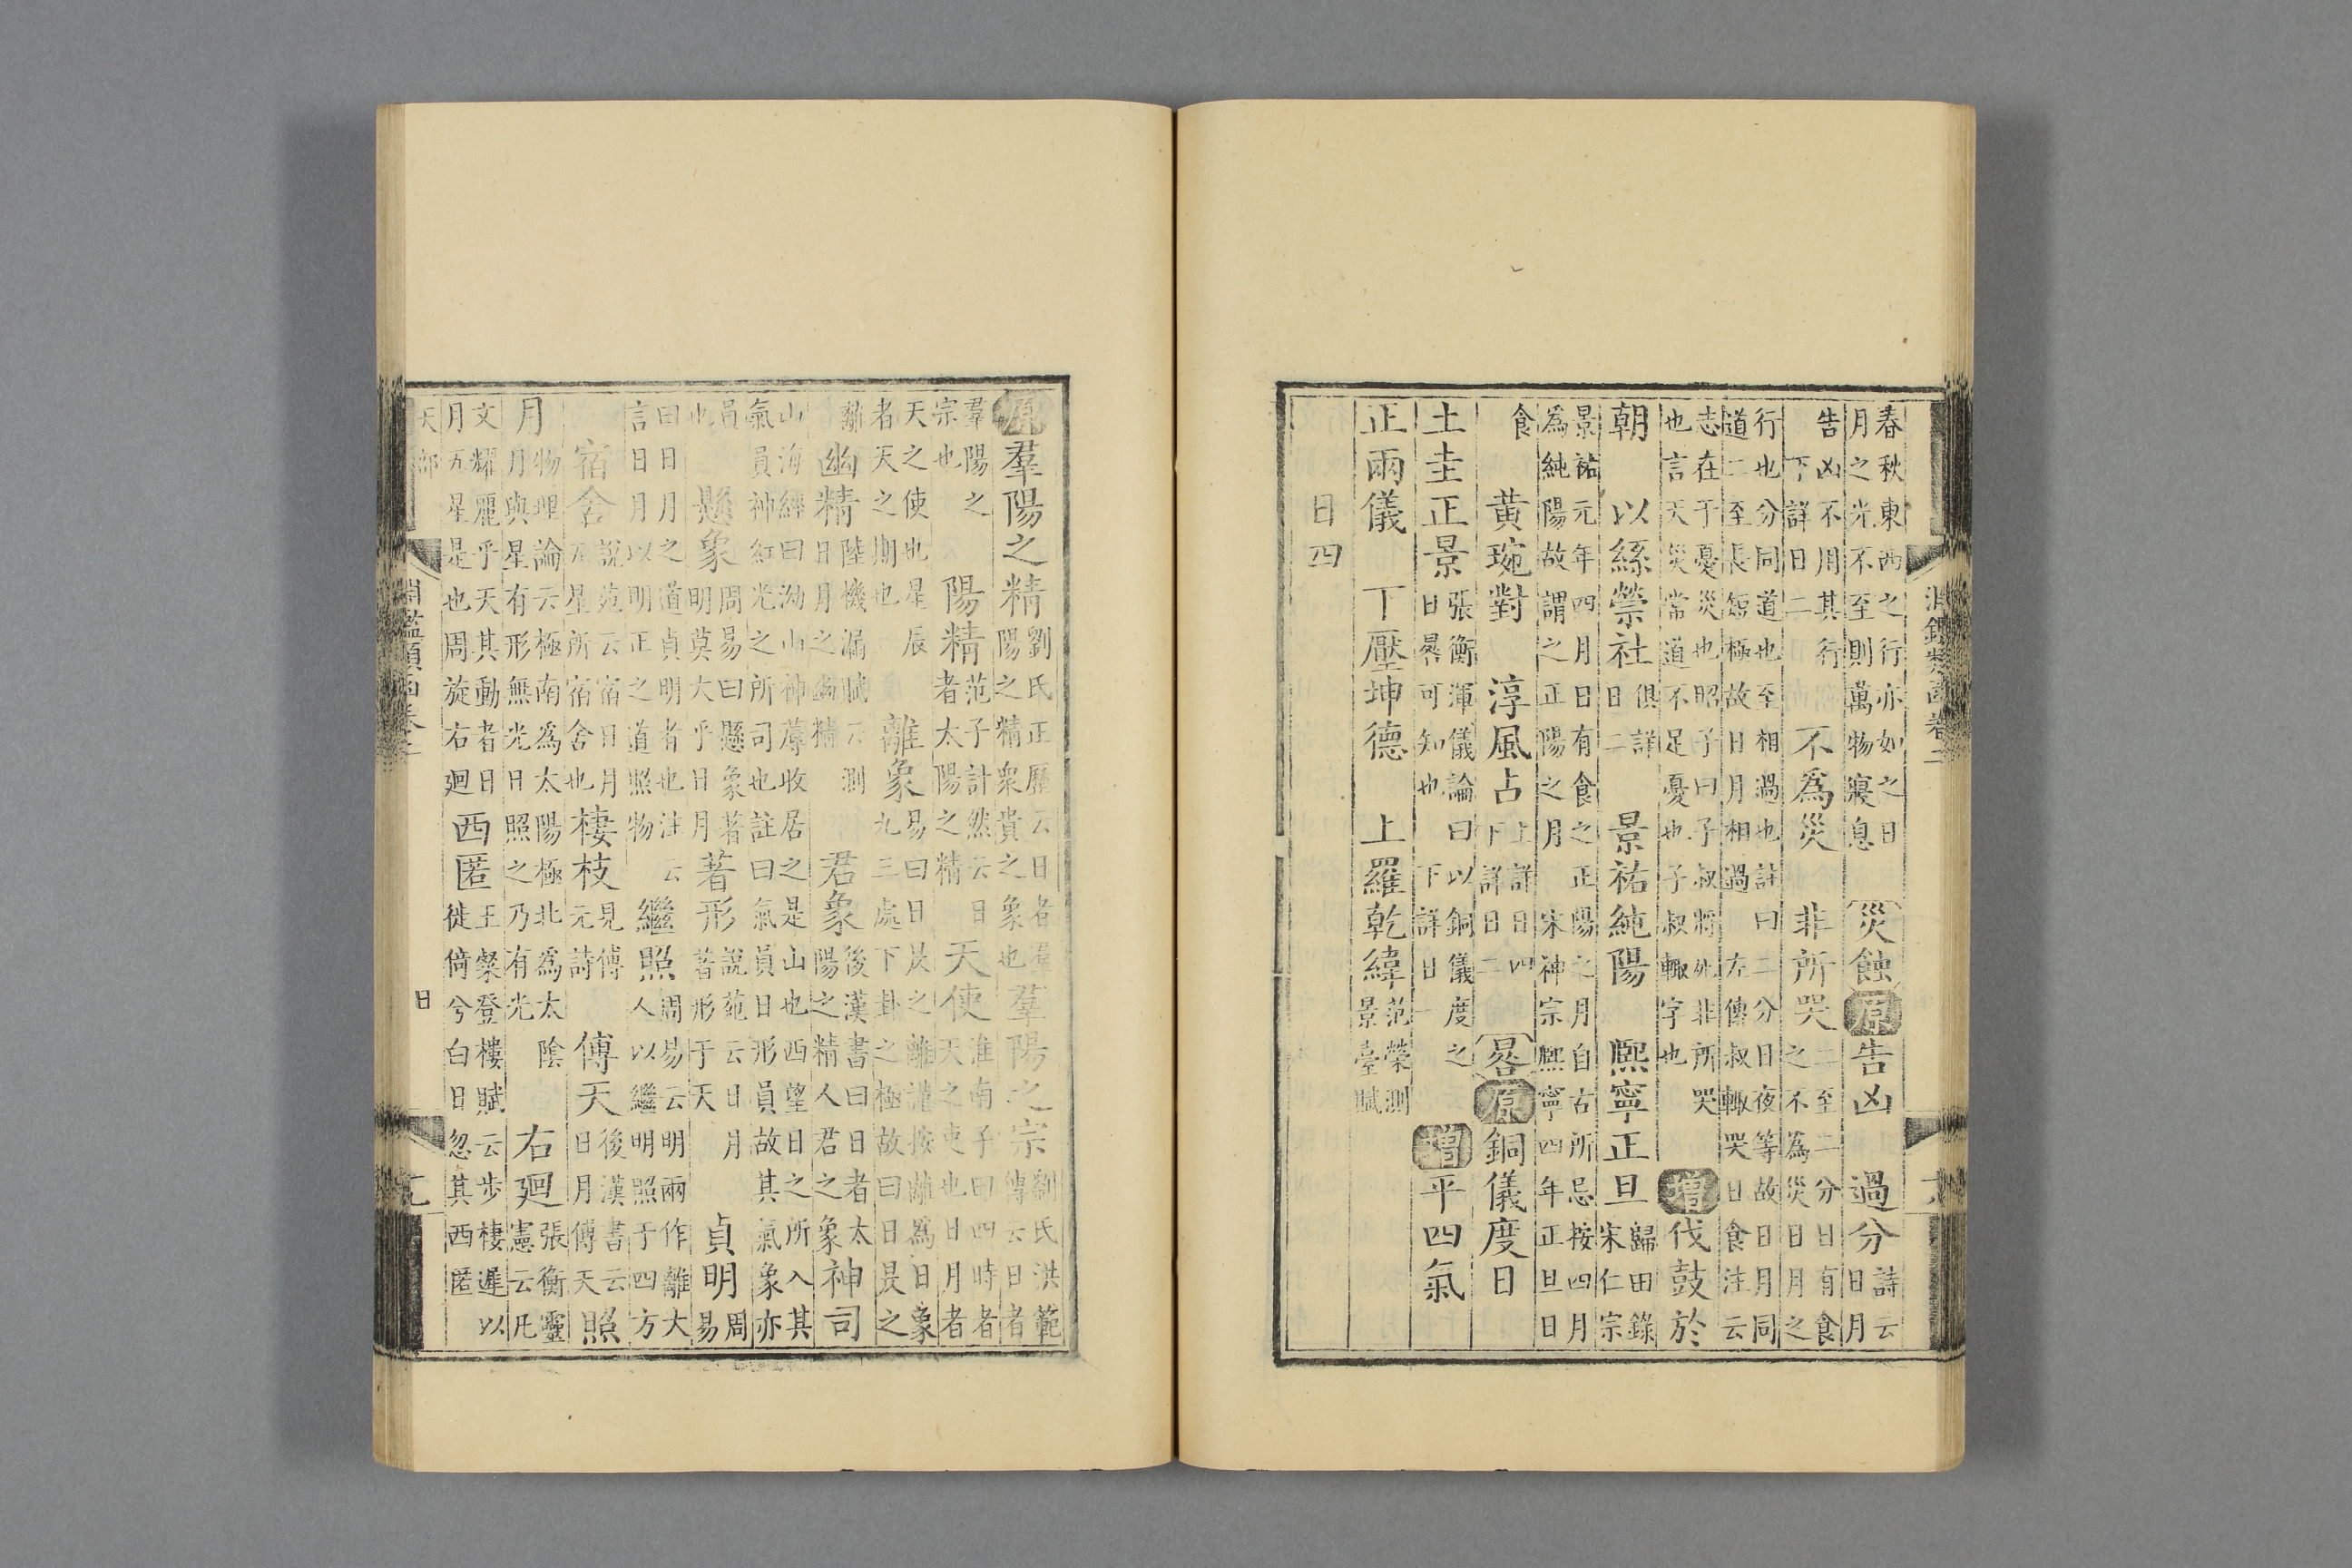 淵鑑類函卷二
春秋東西之行亦如之日月之光不至則萬物寢息 災蝕 原 告凶 過分 詩云日月
告凶不用其行下詳日二 不為災 非所哭 二至二分日有食之不為災日月之
行也分同道也至相過也註曰二分日夜等故日月同道二至長短極故日月相過 左傳叔輒哭日食注云
志在于憂災也昭子曰子叔將死非所哭也言天災常道不足憂也子叔輒字也 增 伐鼓於
朝 以絲縈社 俱詳日二 景祐純陽 熙寧正旦 歸田錄宋仁宗
景祐元年四月日有食之正陽之月自古所忌按四月為純陽故謂之正陽之月 宋神宗熙寧四年正旦日
食 黃琬對 淳風占 上詳日四下詳日二 晷 原 銅儀度日
土圭正景 張衡渾儀論曰以銅儀度之日晷可知也 下詳日一 增 平四氣
正兩儀 下壓坤德 上羅乾緯 范榮測景臺賦
日四
原 羣陽之精 劉氏正歷云日者羣陽之精衆貴之象也 羣陽之宗 劉氏洪範傳云日者
羣陽之宗也 陽精 范子計然云日者太陽之精 天使 淮南子曰四時者天之吏也日月者
天之使也星辰者天之期也 離象 易曰日昃之離謹按離為日象九三處下卦之極故曰日昃之
離 幽精 陸機漏賦云測日月之幽精 君象 後漢書曰日者太陽之精人君之象 神司
山海經曰泑山神蓐收居之是山也西望日之所入其氣員神紅光之所司也註曰氣員日形員故其氣象亦
員也 懸象 周易曰懸象著明莫大乎日月 著形 說苑云日月著形于天 貞明 周易
曰日月之道貞明者也注云言日月以明正之道照物 繼照 周易云明兩作離大人以繼明照于四方
宿舍 說苑云宿日月五星所宿舍也 棲枝 見傅元詩 傅天 後漢書云日月傅天 照
月 物理論云極南為太陽極北為太陰月與星有形無光日照之乃有光 右廻 張衡靈憲云凡
文耀麗乎天其動者日月五星是也周旋右廻 西匿 王粲登樓賦云步棲遲以徙倚兮白日忽其西匿
天部
淵鑑類函卷二 日